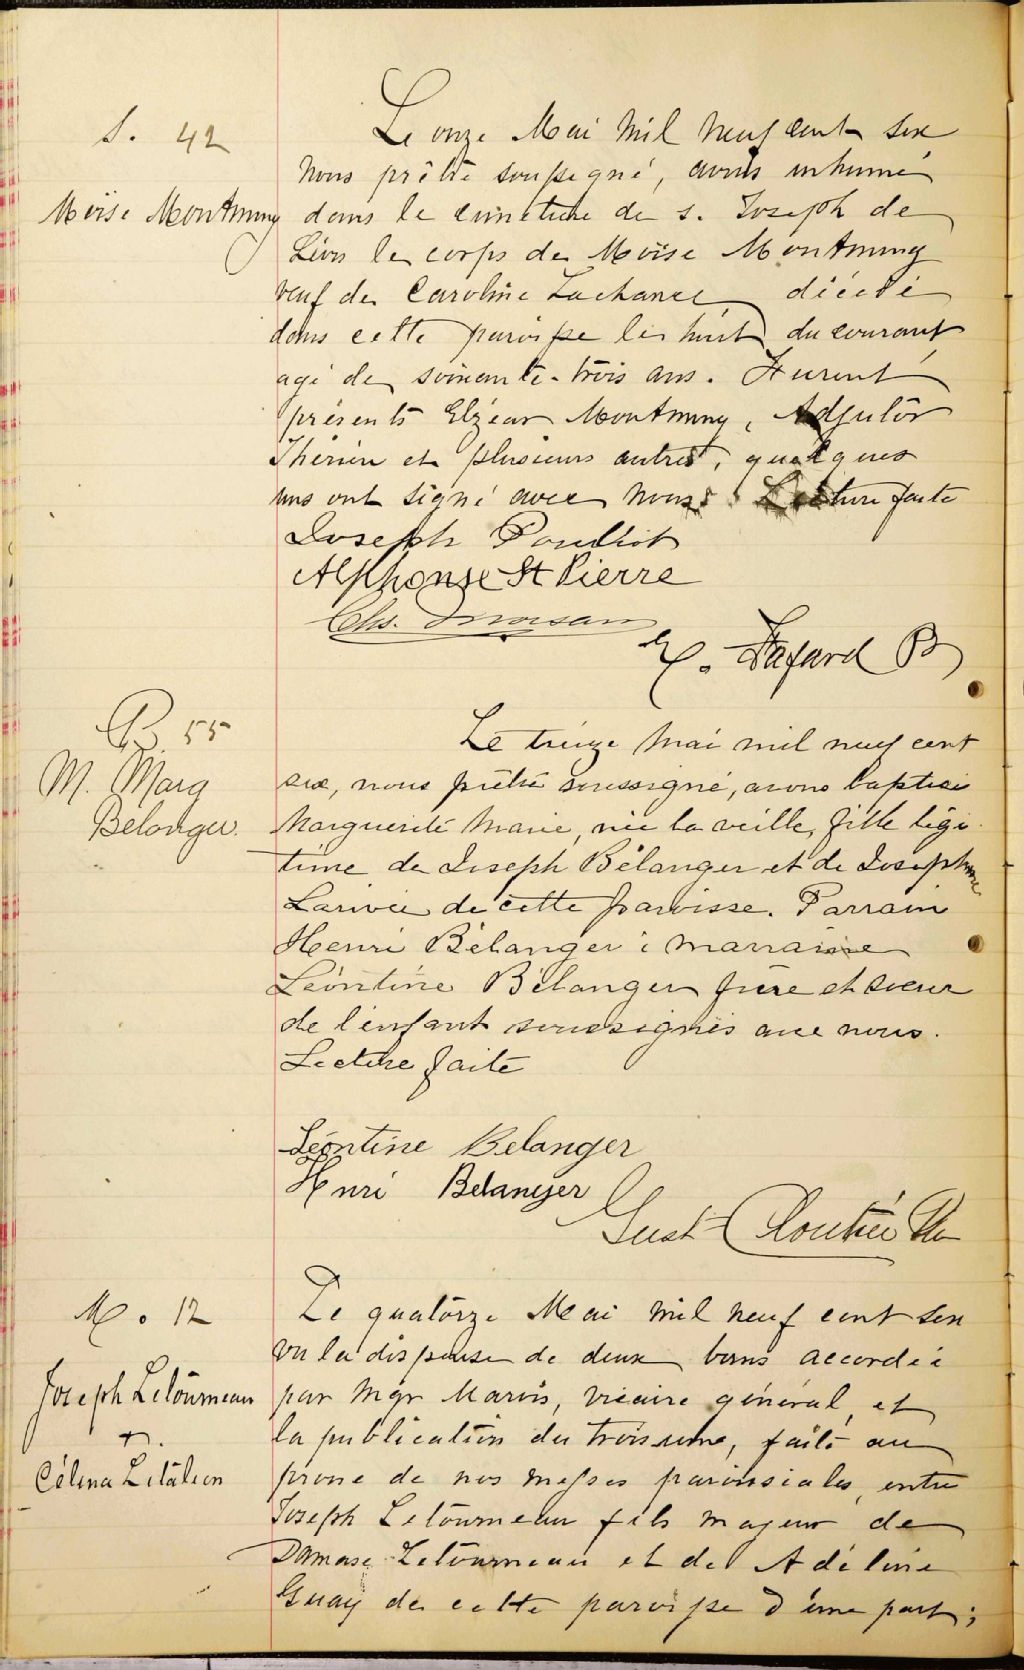 S. 42
Moïse Montminy
Le onze Mai mil neuf cent six
nous prêtre soussigné, avons inhumé
dans le cimetière de S. Joseph de
Lévis le corps de Moïse Montminy
veuf de Caroline Lachance décédé
dans cette paroisse le huit du courant
agé de soixante-trois ans. Furent
présents Elzéar Montminy, Adjutor
Thérien et plusieurs autres, quelques
uns ont signé avec nous. Lecture faite
Joseph Pouliot
Alphonse St Pierre
Chs.
E. Fafard
B. 55
M. Marg
Bélanger.
Le treize mai mil neuf cent
six, nous prêtre soussigné, avons baptisé
Marguerite Marie, née la veille, fille légi
time de Joseph Bélanger et de Josephine
Larivée de cette paroisse. Parrain
Henri Bélanger ; marraine
Léontine Bélanger frère et soeur
de l'enfant soussignés avec nous.
Lecture faite
Léontine Belanger
Henri Belanger
Gust. Cloutier Ptre
M. 12
Joseph Letourneau
+.
Célina Litalien
Le quatorze Mai mil neuf cent six
vu la dispense de deux bans accordée
par Mgr Marois, vicaire général, et
la publication du troisième, faite au
prone de nos messes paroissiales, entre
Joseph Letourneau fils majeur de
Damase Letourneau et de Adéline
Guay de cette paroisse d'une part ;